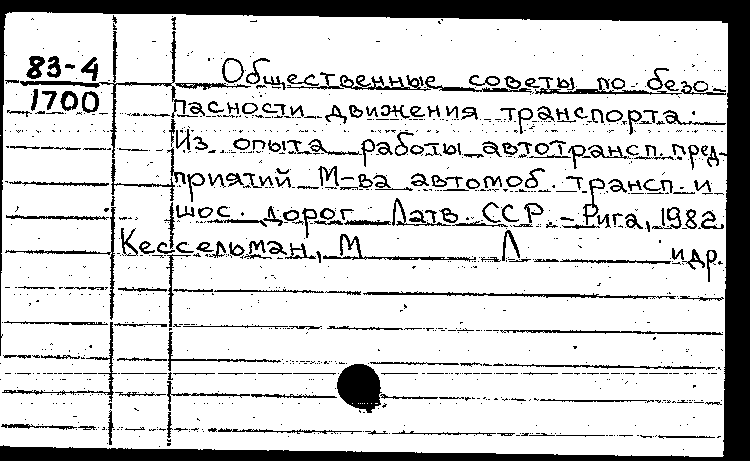 83-4
1700
Общественные советы по безо-
пасности движения транспорта:
Из опыта работы автотрансп. пред-
приятий М-ва автомоб. трансп. и
шос. дорог Латв. ССР. - Рига, 1982.
Кессельман, М Л и др.